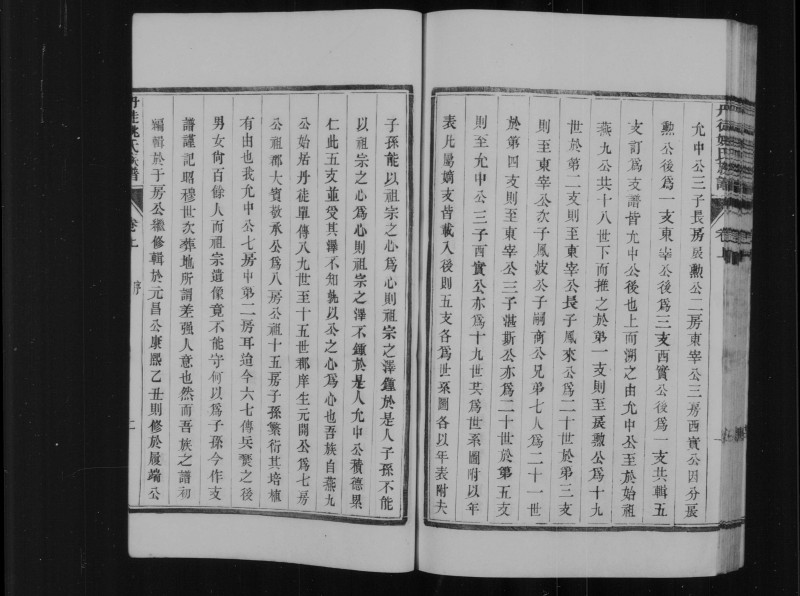 允中公三子長房展勲公二房東宰公三房西實公因分展
勲公後爲一支東宰公後爲三支西實公後爲一支共輯五
支訂爲支譜皆允中公後也上而溯之由允中公至於始祖
燕九公共十八世下而推之於第一支則至展勲公爲十九
世於第二支則至東宰公長子鳳來公爲二十世於第三支
則至東宰公次子鳳波公子嗣商公兄弟七人爲二十一世
於第四支則至東宰公三子湛斯公亦爲二十世於第五支
則至允中公三子西實公亦爲十九世共爲世系圖附以年
表凡屬嫡支皆載入後則五支各爲世系圖各以年表附夫
子孫能以祖宗之心爲心則祖宗之澤鍾於是人子孫不能
以祖宗之心爲心則祖宗之澤不鍾於是人允中公積德累
仁此五支並受其澤不知孰以公之心爲心也吾族自燕九
公始居丹徒單傳八九世至十五世郡庠生元開公爲七房
公祖郡大賓敬承公爲八房公祖十五房子孫繁衍其培植
有由也我允中公七房中第二房耳迨今六七傳兵燹之後
男女尚百餘人而祖宗遺像竟不能守何以爲子孫今作支
譜謹記昭穆世次葬地所謂差强人意也然而吾族之譜初
編輯於于房公繼修輯於元昌公康熙乙丑則修於履端公
丹徒姚氏族譜 卷上 序 二